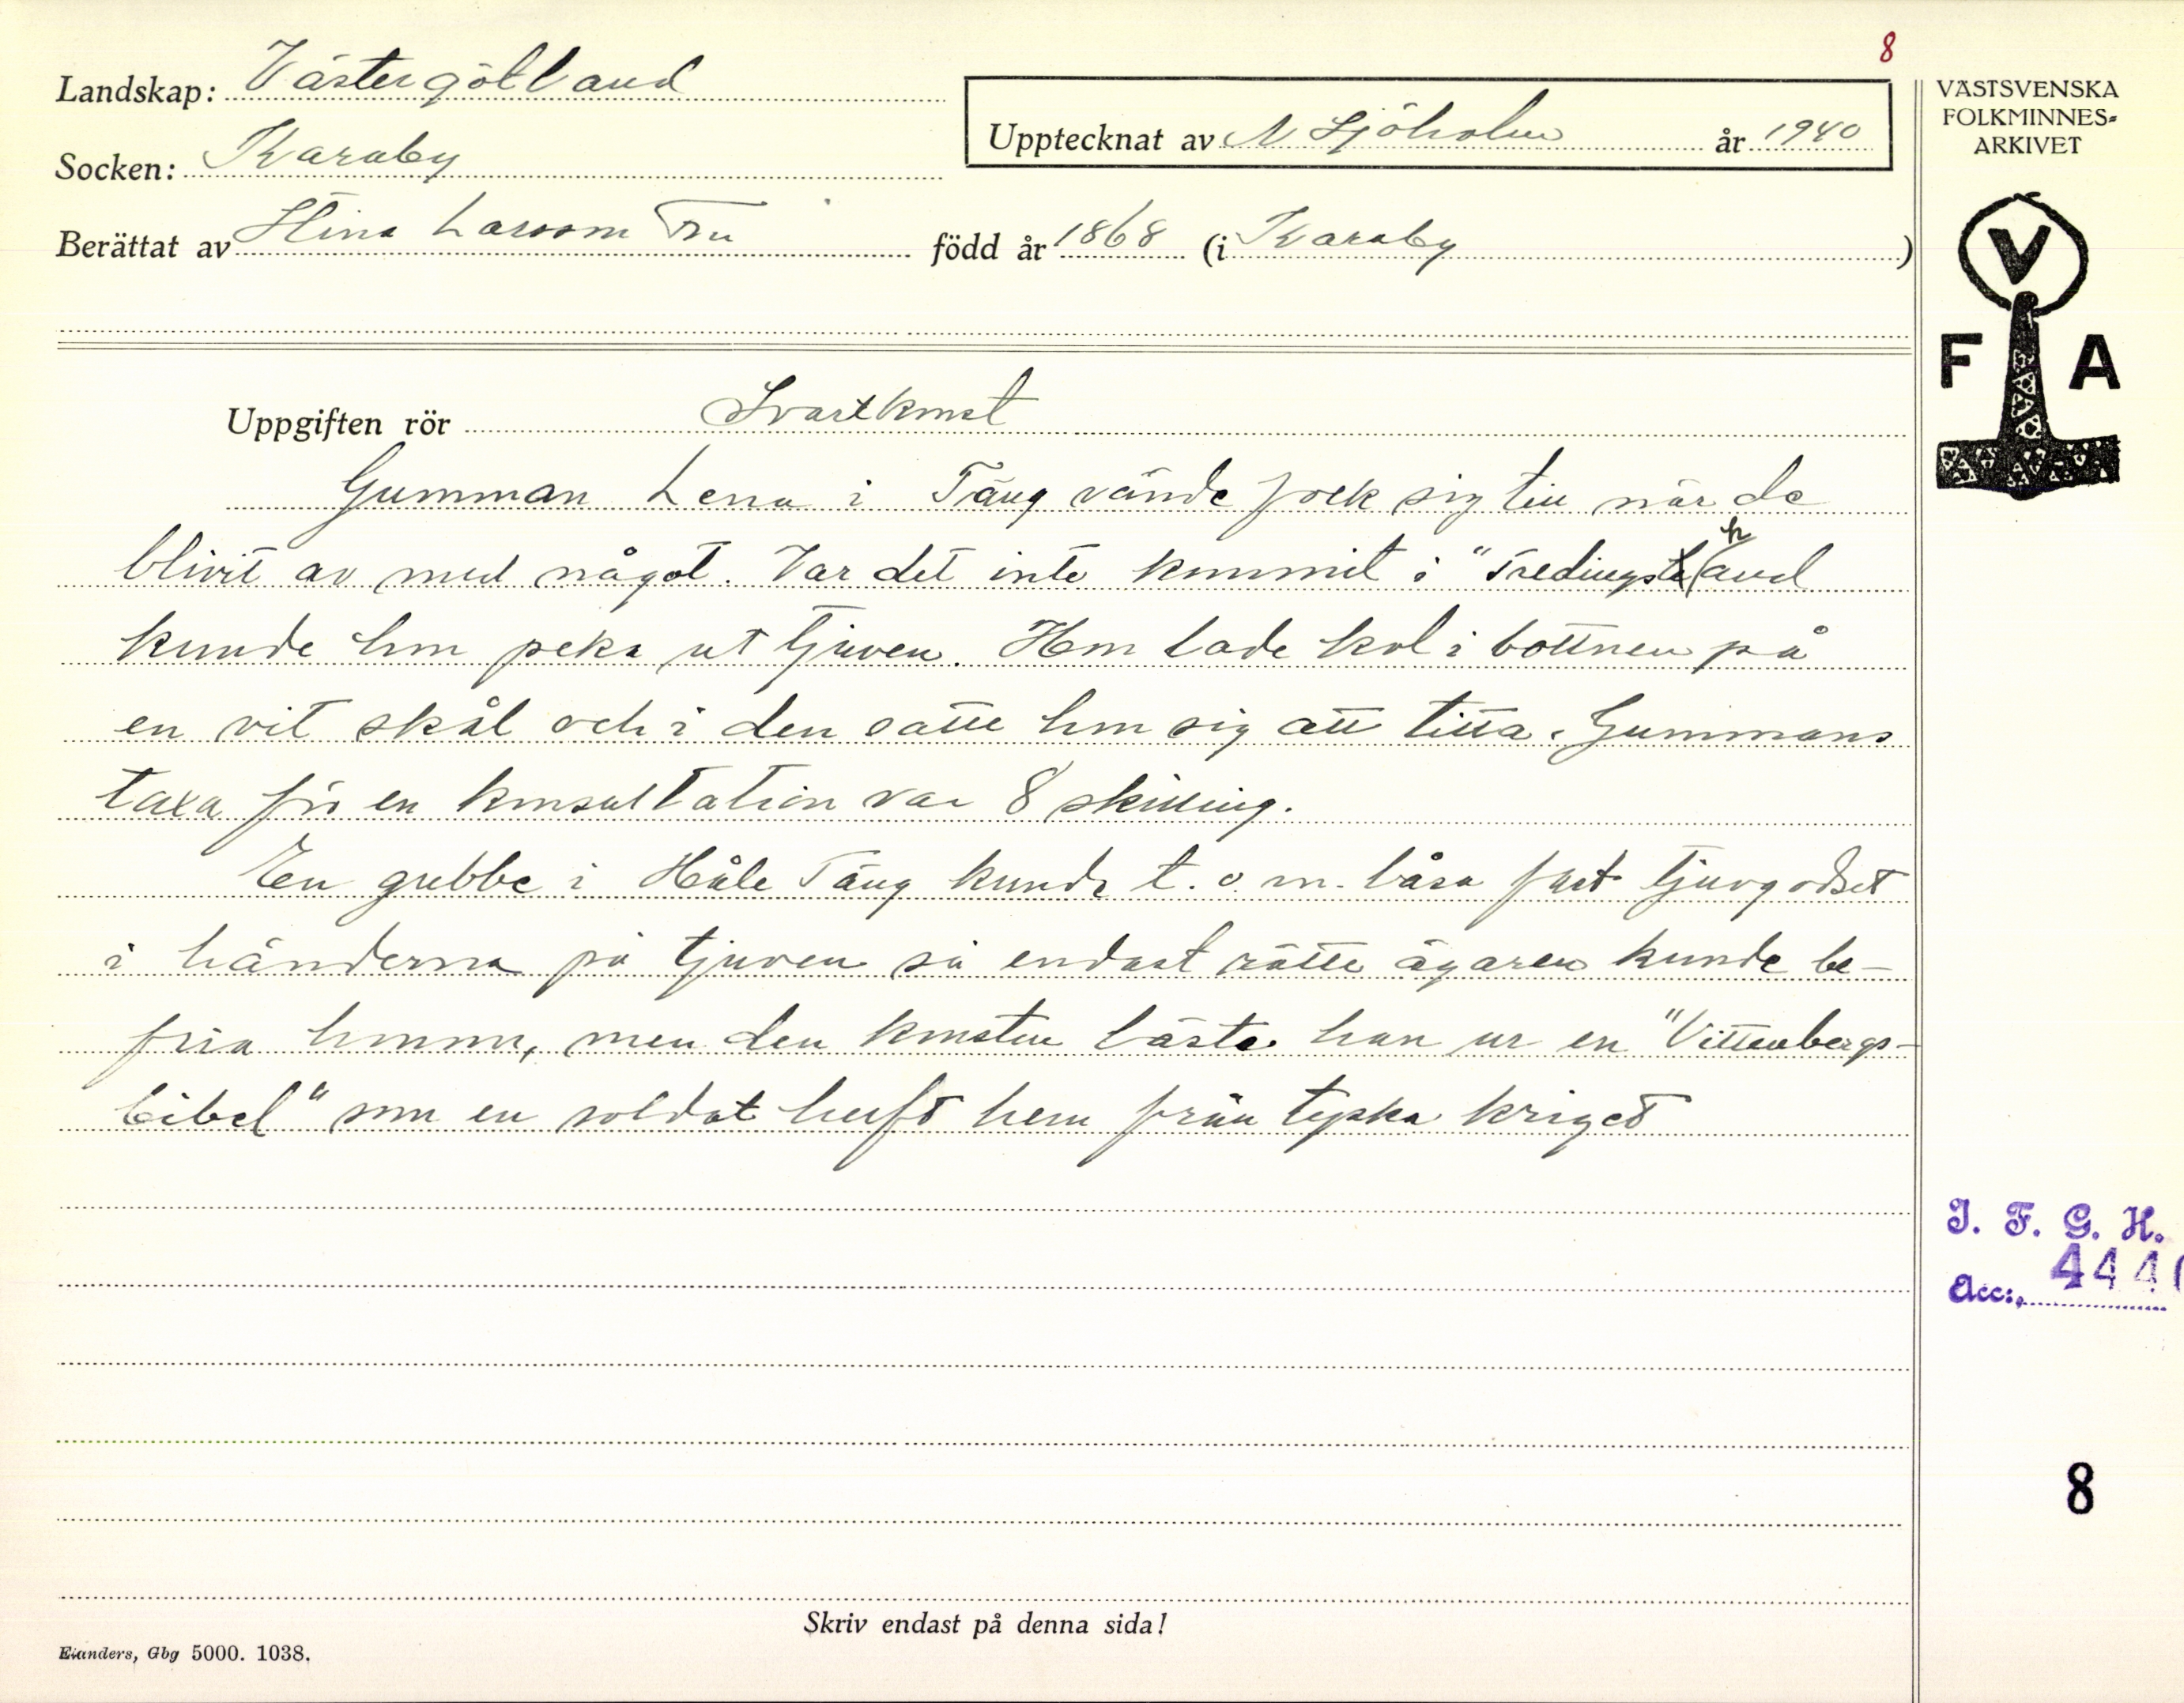 8
Landskap: Västergötland
Socken: Karaby
Upptecknat av N Sjöholm år 1940
Berättat av Stina Larsson Fru född år 1868 (i Karaby)
VÄSTSVENSKA
FOLKMINNES-
ARKIVET
V
F A
Uppgiften rör Svartkonst
Gumman Lena i Täng vände folk sig till när de
blivit av med något. Var det inte kommit i "Tredingshand
kunde hon peka ut tjuven. Hon lade kol i bottnen på
en vit skål och i den satte hon sig att titta. Gummans
taxa för en konsultation var 8 skilling.
En gubbe i Håle Täng kunde t.o.m. låsa fast tjuvgodset
i händerna på tjuven så endast rätte ägaren kunde be-
fria honom, men den konsten läste han ur en "Vittenbergs-
bibel" som en soldat haft hem från tyska kriget
I. F. G. H.
Acc:. 444
8
Skriv endast på denna sida!
Elanders, Gbg 5000. 1038.